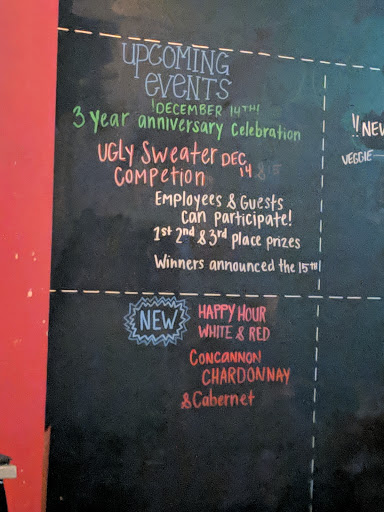 UPCOMING
EVENTS
!DECEMBER 14TH!
3 year anniversary celebration
UGLY SWEATER DEC
14 & 15
COMPETION
EMPLOYEES & GUESTS
can participate!
1st 2nd & 3rd place prizes
Winners announced the 15TH!
!!NEW
VEGGIE
NEW
HAPPY HOUR
WHITE & RED
CONCANNON
CHARDONNAY
& Cabernet